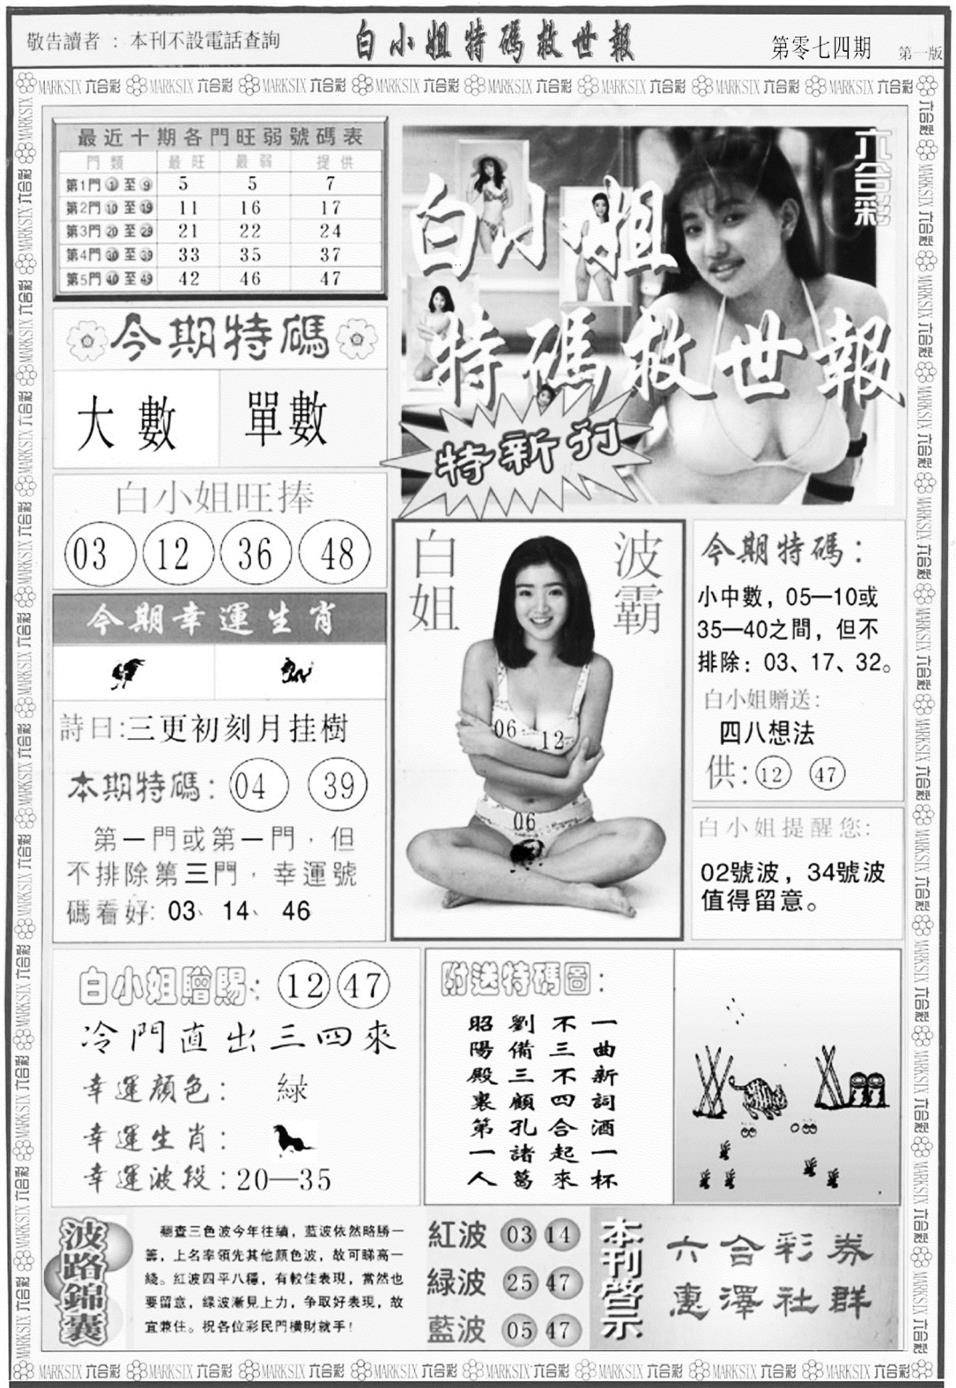 敬告讀者：本刊不設電話查詢
白小姐特碼救世報
第零七四期
第一版
MARKSIX 六合彩 MARKSIX 六合彩 MARKSIX 六合彩 MARKSIX 六合彩 MARKSIX 六合彩 MARKSIX 六合彩 MARKSIX 六合彩 MARKSIX 六合彩
最近十期各門旺弱號碼表
門類 最旺 最弱 提供
第1門①至⑨ 5 5 7
第2門⑩至⑲ 11 16 17
第3門⑳至㉙ 21 22 24
第4門㉚至㊴ 33 35 37
第5門㊵至㊾ 42 46 47
六合彩
白小姐
特碼救世報
特新刊
今期特碼
大數 單數
白小姐旺捧
03 12 36 48
今期幸運生肖
詩曰:三更初刻月挂樹
本期特碼: 04 39
第一門或第一門，但
不排除第三門，幸運號
碼看好: 03、14、46
白姐
波霸
06 12
06
今期特碼：
小中數，05—10或
35—40之間，但不
排除：03、17、32。
白小姐贈送:
四八想法
供: 12 47
白小姐提醒您:
02號波，34號波
值得留意。
白小姐贈賜: 12 47
冷門直出三四來
幸運顏色： 緑
幸運生肖：
幸運波段:20—35
附送特碼圖:
一曲新詞酒一杯
不三不四合起來
劉備三顧孔諸葛
昭陽殿裏第一人
波路錦囊
翻查三色波今年往績，藍波依然略勝一
籌，上名率領先其他顏色波，故可睇高一
綫。紅波四平八穩，有較佳表現，當然也
要留意，緑波漸見上力，爭取好表現，故
宜兼住。祝各位彩民門橫財就手！
紅波 03 14
緑波 25 47
藍波 05 47
本刊啓示
六合彩券
惠澤社群
MARKSIX 六合彩 MARKSIX 六合彩 MARKSIX 六合彩 MARKSIX 六合彩 MARKSIX 六合彩 MARKSIX 六合彩 MARKSIX 六合彩 MARKSIX 六合彩